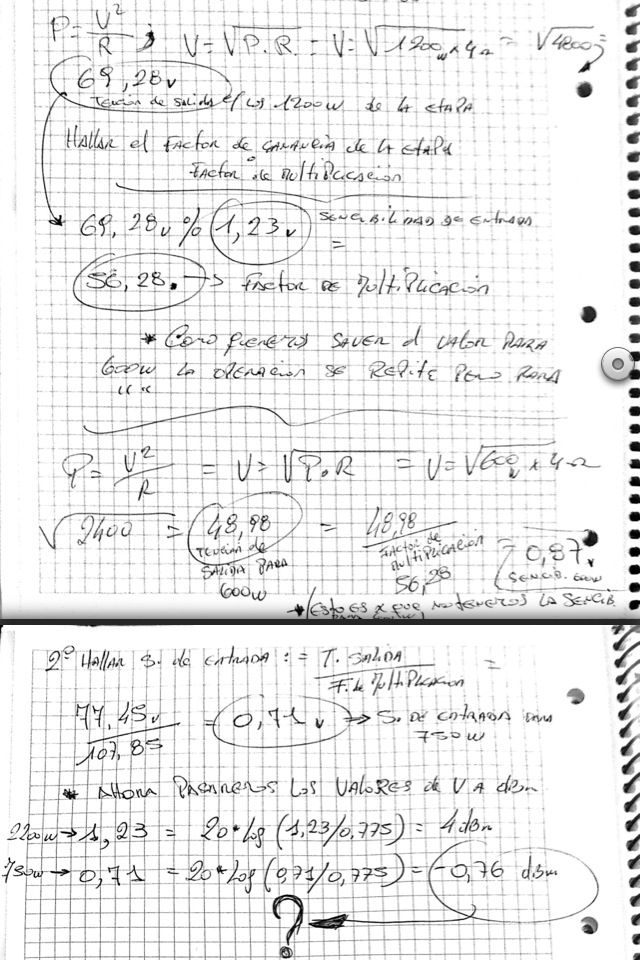 P = V²/R ; V = √P.R. = V: √1200w x 4Ω = √4800 =
69,28v
Tensión de salida p/ los 1200w de la etapa
Hallar el factor de ganancia de la etapa
Factor de multiplicación
69,28v % 1,23v sensibilidad de entrada
=
56,28. → Factor de multiplicación
* Como queremos saver el valor para
600w la operacion se repite pero para
" "
P = V²/R = V = √P.R = V = √600w x 4Ω
√2400 = 48,98 = 48,98 = 0,87v
Tensión de salida para 600w
Factor de multiplicación
56,28
Sencib. 600w
* (Esto es x que no tenemos la sencib.
2º Hallar S. de entrada : = T. Salida =
F. de multiplicacion
77,45v / 107,85 = 0,71v → S. de entrada para
750w
* Ahora pasaremos los valores de V a dBm
2200w → 1,23 = 20*log (1,23/0,775) = 4 dBm
750w → 0,71 = 20*log (0,71/0,775) = -0,76 dBm
?